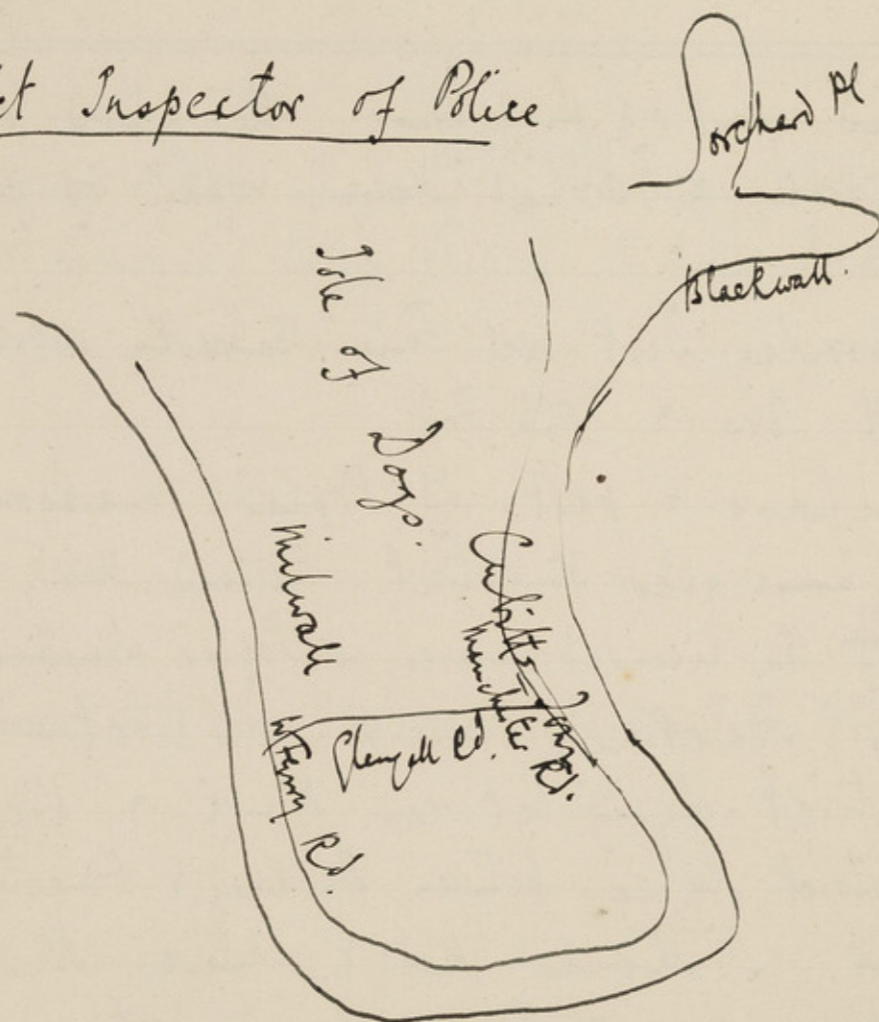 Inspector of Police
Orchard Pl
Blackwall.
Isle of Dogs.
Millwall
Cubitts Town
Manchester Rd.
Glengall Rd.
W Ferry Rd.